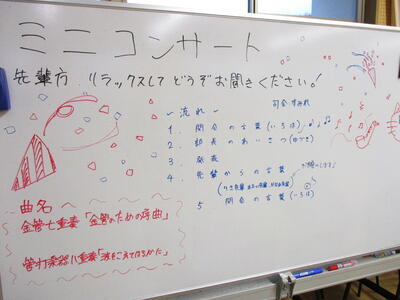 ミニコンサート
先輩方 リラックスして どうぞお聞きください!
～流れ～ 司会 すみれ
1. 開会の言葉(いろは)
2. 部長のあいさつ
3. 発表
4. 先輩からの言葉
5 閉会の言葉(いろは)
～曲名～
金管七重奏「金管のための序曲」
管打楽器八重奏「波をこえてはるかた」